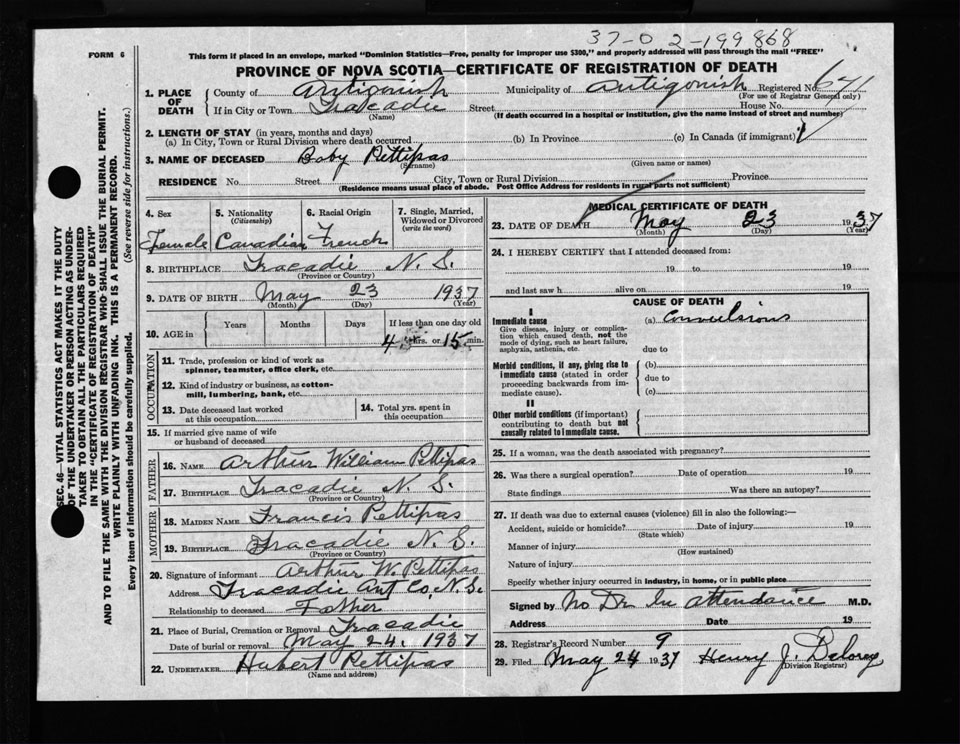 37-0 2-199868
FORM 6
This form if placed in an envelope, marked "Dominion Statistics—Free, penalty for improper use $300," and properly addressed will pass through the mail "FREE"
PROVINCE OF NOVA SCOTIA—CERTIFICATE OF REGISTRATION OF DEATH
1. PLACE OF DEATH
County of Antigonish Municipality of Antigonish Registered No. 641
(For use of Registrar General only)
If in City or Town Tracadie Street House No.
(Name) (If death occurred in a hospital or institution, give the name instead of street and number)
2. LENGTH OF STAY (in years, months and days)
(a) In City, Town or Rural Division where death occurred (b) In Province (c) In Canada (if immigrant)
3. NAME OF DECEASED Baby Pettipas
(Surname) (Given name or names)
RESIDENCE No. Street City, Town or Rural Division Province
(Residence means usual place of abode. Post Office Address for residents in rural parts not sufficient)
4. Sex Female
5. Nationality (Citizenship) Canadian
6. Racial Origin French
7. Single, Married, Widowed or Divorced (write the word)
8. BIRTHPLACE Tracadie N. S.
(Province or Country)
9. DATE OF BIRTH May 23 1937
(Month) (Day) (Year)
10. AGE in Years Months Days If less than one day old
4 hrs. or 15 min.
OCCUPATION
11. Trade, profession or kind of work as spinner, teamster, office clerk, etc.
12. Kind of industry or business, as cotton-mill, lumbering, bank, etc.
13. Date deceased last worked at this occupation
14. Total yrs. spent in this occupation
15. If married give name of wife or husband of deceased
FATHER
16. NAME Arthur William Pettipas
17. BIRTHPLACE Tracadie N. S.
(Province or Country)
MOTHER
18. MAIDEN NAME Francis Pettipas
19. BIRTHPLACE Tracadie N. S.
(Province or Country)
20. Signature of informant Arthur W. Pettipas
Address Tracadie Ant Co. N. S.
Relationship to deceased Father
21. Place of Burial, Cremation or Removal Tracadie
Date of burial or removal May 24. 1937
22. UNDERTAKER Hubert Pettipas
(Name and address)
MEDICAL CERTIFICATE OF DEATH
23. DATE OF DEATH May 23 1937
(Month) (Day) (Year)
24. I HEREBY CERTIFY that I attended deceased from:
19 to 19
and last saw h alive on 19
CAUSE OF DEATH
I
Immediate cause (a) Convulsions
Give disease, injury or complication which caused death, not the mode of dying, such as heart failure, asphyxia, asthenia, etc.
due to
Morbid conditions, if any, giving rise to immediate cause (stated in order proceeding backwards from immediate cause).
(b)
due to
(c)
II
Other morbid conditions (if important) contributing to death but not causally related to immediate cause.
25. If a woman, was the death associated with pregnancy?
26. Was there a surgical operation? Date of operation 19
State findings Was there an autopsy?
27. If death was due to external causes (violence) fill in also the following:—
Accident, suicide or homicide? Date of injury 19
(State which)
Manner of injury
(How sustained)
Nature of injury
Specify whether injury occurred in industry, in home, or in public place
Signed by No Dr In attendance M.D.
Address Date 19
28. Registrar's Record Number 9
29. Filed May 24 1937 Henry J. Delorey
(Division Registrar)
SEC. 46—VITAL STATISTICS ACT MAKES IT THE DUTY
OF THE UNDERTAKER OR PERSON ACTING AS UNDER-
TAKER TO OBTAIN ALL THE PARTICULARS REQUIRED
IN THE "CERTIFICATE OF REGISTRATION OF DEATH"
AND TO FILE THE SAME WITH THE DIVISION REGISTRAR WHO SHALL ISSUE THE BURIAL PERMIT.
WRITE PLAINLY WITH UNFADING INK. THIS IS A PERMANENT RECORD.
Every item of information should be carefully supplied. (See reverse side for instructions.)